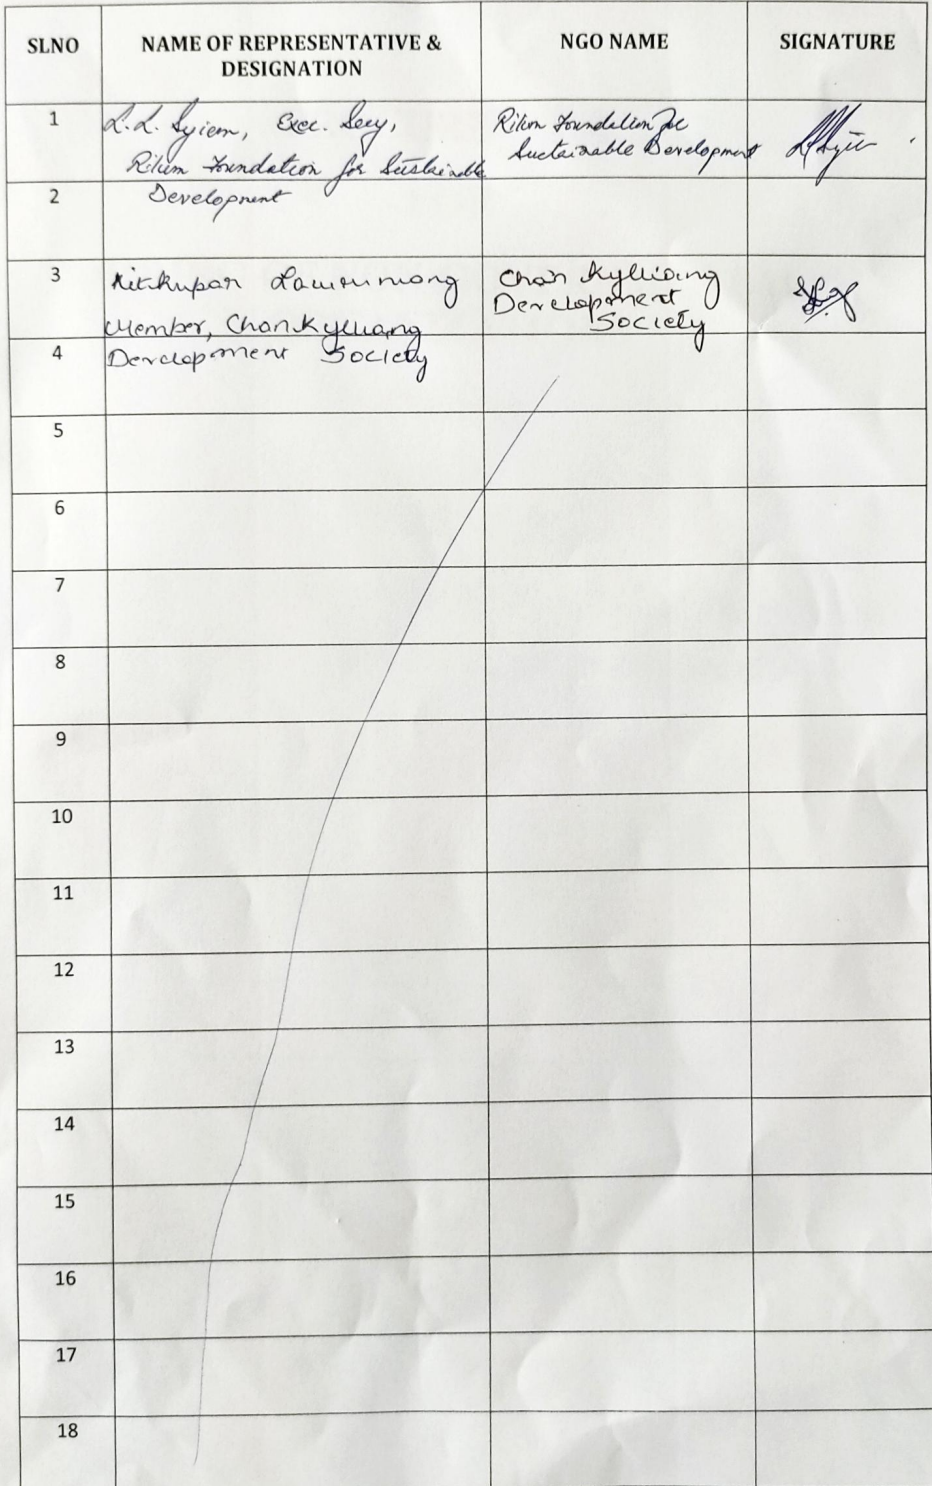 SLNO NAME OF REPRESENTATIVE & DESIGNATION NGO NAME SIGNATURE
1 L.L. Syiem, Exec. Secy, Rilum Foundation for
Rilum Foundation for Sustainable Sustainable Development
2 Development
3 Kitkupar Chan Kylliang
Member, Chan Kylliang Development
Society
4 Development Society
5
6
7
8
9
10
11
12
13
14
15
16
17
18